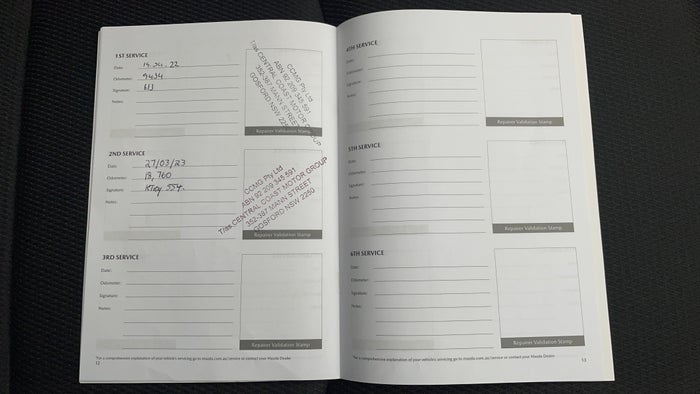 1ST SERVICE
Date: 14.04.22
Odometer: 9454
Signature: 613
Notes:
CCMG Pty Ltd
ABN 92 209 345 591
T/as CENTRAL COAST MOTOR GROUP
352-387 MANN STREET
GOSFORD NSW 2250
Repairer Validation Stamp
2ND SERVICE
Date: 27/03/23
Odometer: 18,760
Signature: 554.
Notes:
CCMG Pty Ltd
ABN 92 209 345 591
T/as CENTRAL COAST MOTOR GROUP
352-387 MANN STREET
GOSFORD NSW 2250
Repairer Validation Stamp
3RD SERVICE
Date:
Odometer:
Signature:
Notes:
Repairer Validation Stamp
For a comprehensive explanation of your vehicle's servicing go to mazda.com.au/service or contact your Mazda Dealer
12
4TH SERVICE
Date:
Odometer:
Signature:
Notes:
Repairer Validation Stamp
5TH SERVICE
Date:
Odometer:
Signature:
Notes:
Repairer Validation Stamp
6TH SERVICE
Date:
Odometer:
Signature:
Notes:
Repairer Validation Stamp
For a comprehensive explanation of your vehicle's servicing go to mazda.com.au/service or contact your Mazda Dealer
13